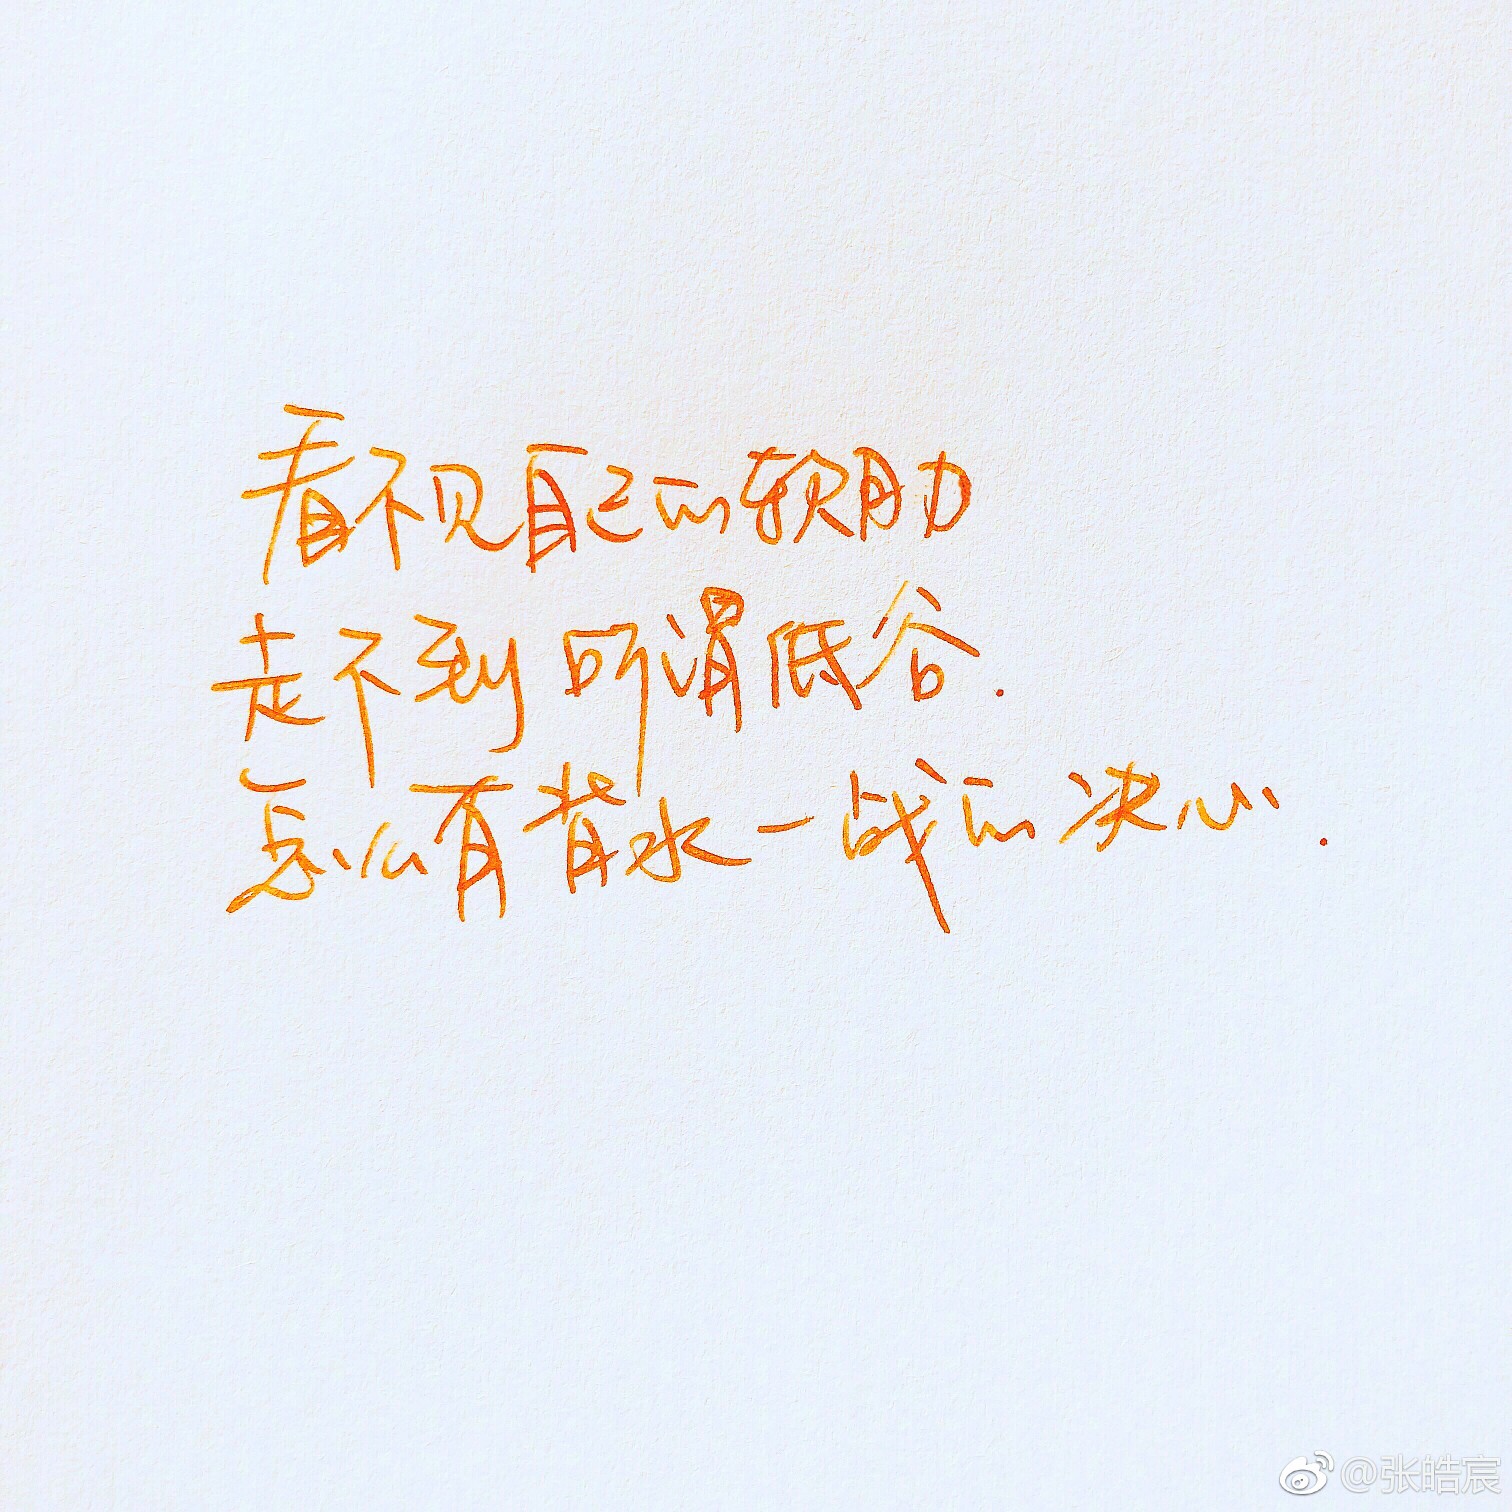 看不见自己的软肋
走不到所谓低谷.
怎么有背水一战的决心.
@张皓宸